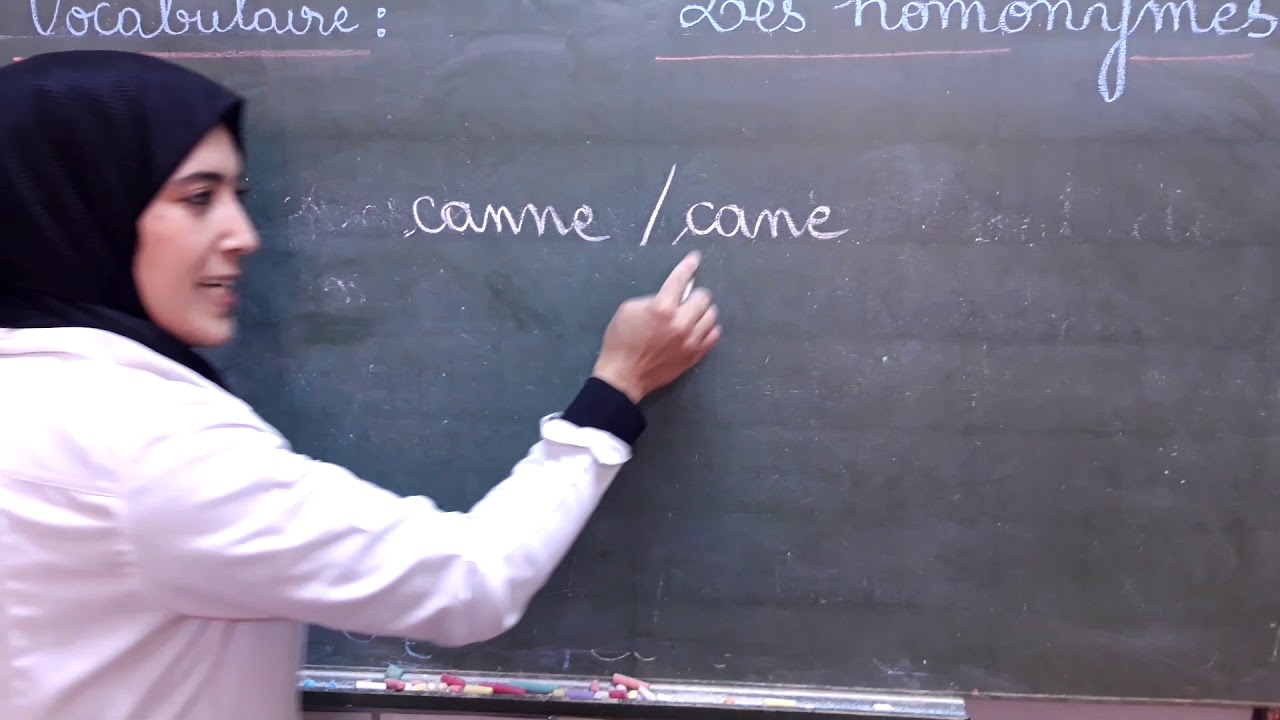 Vocabulaire : Les homonymes
canne / cane